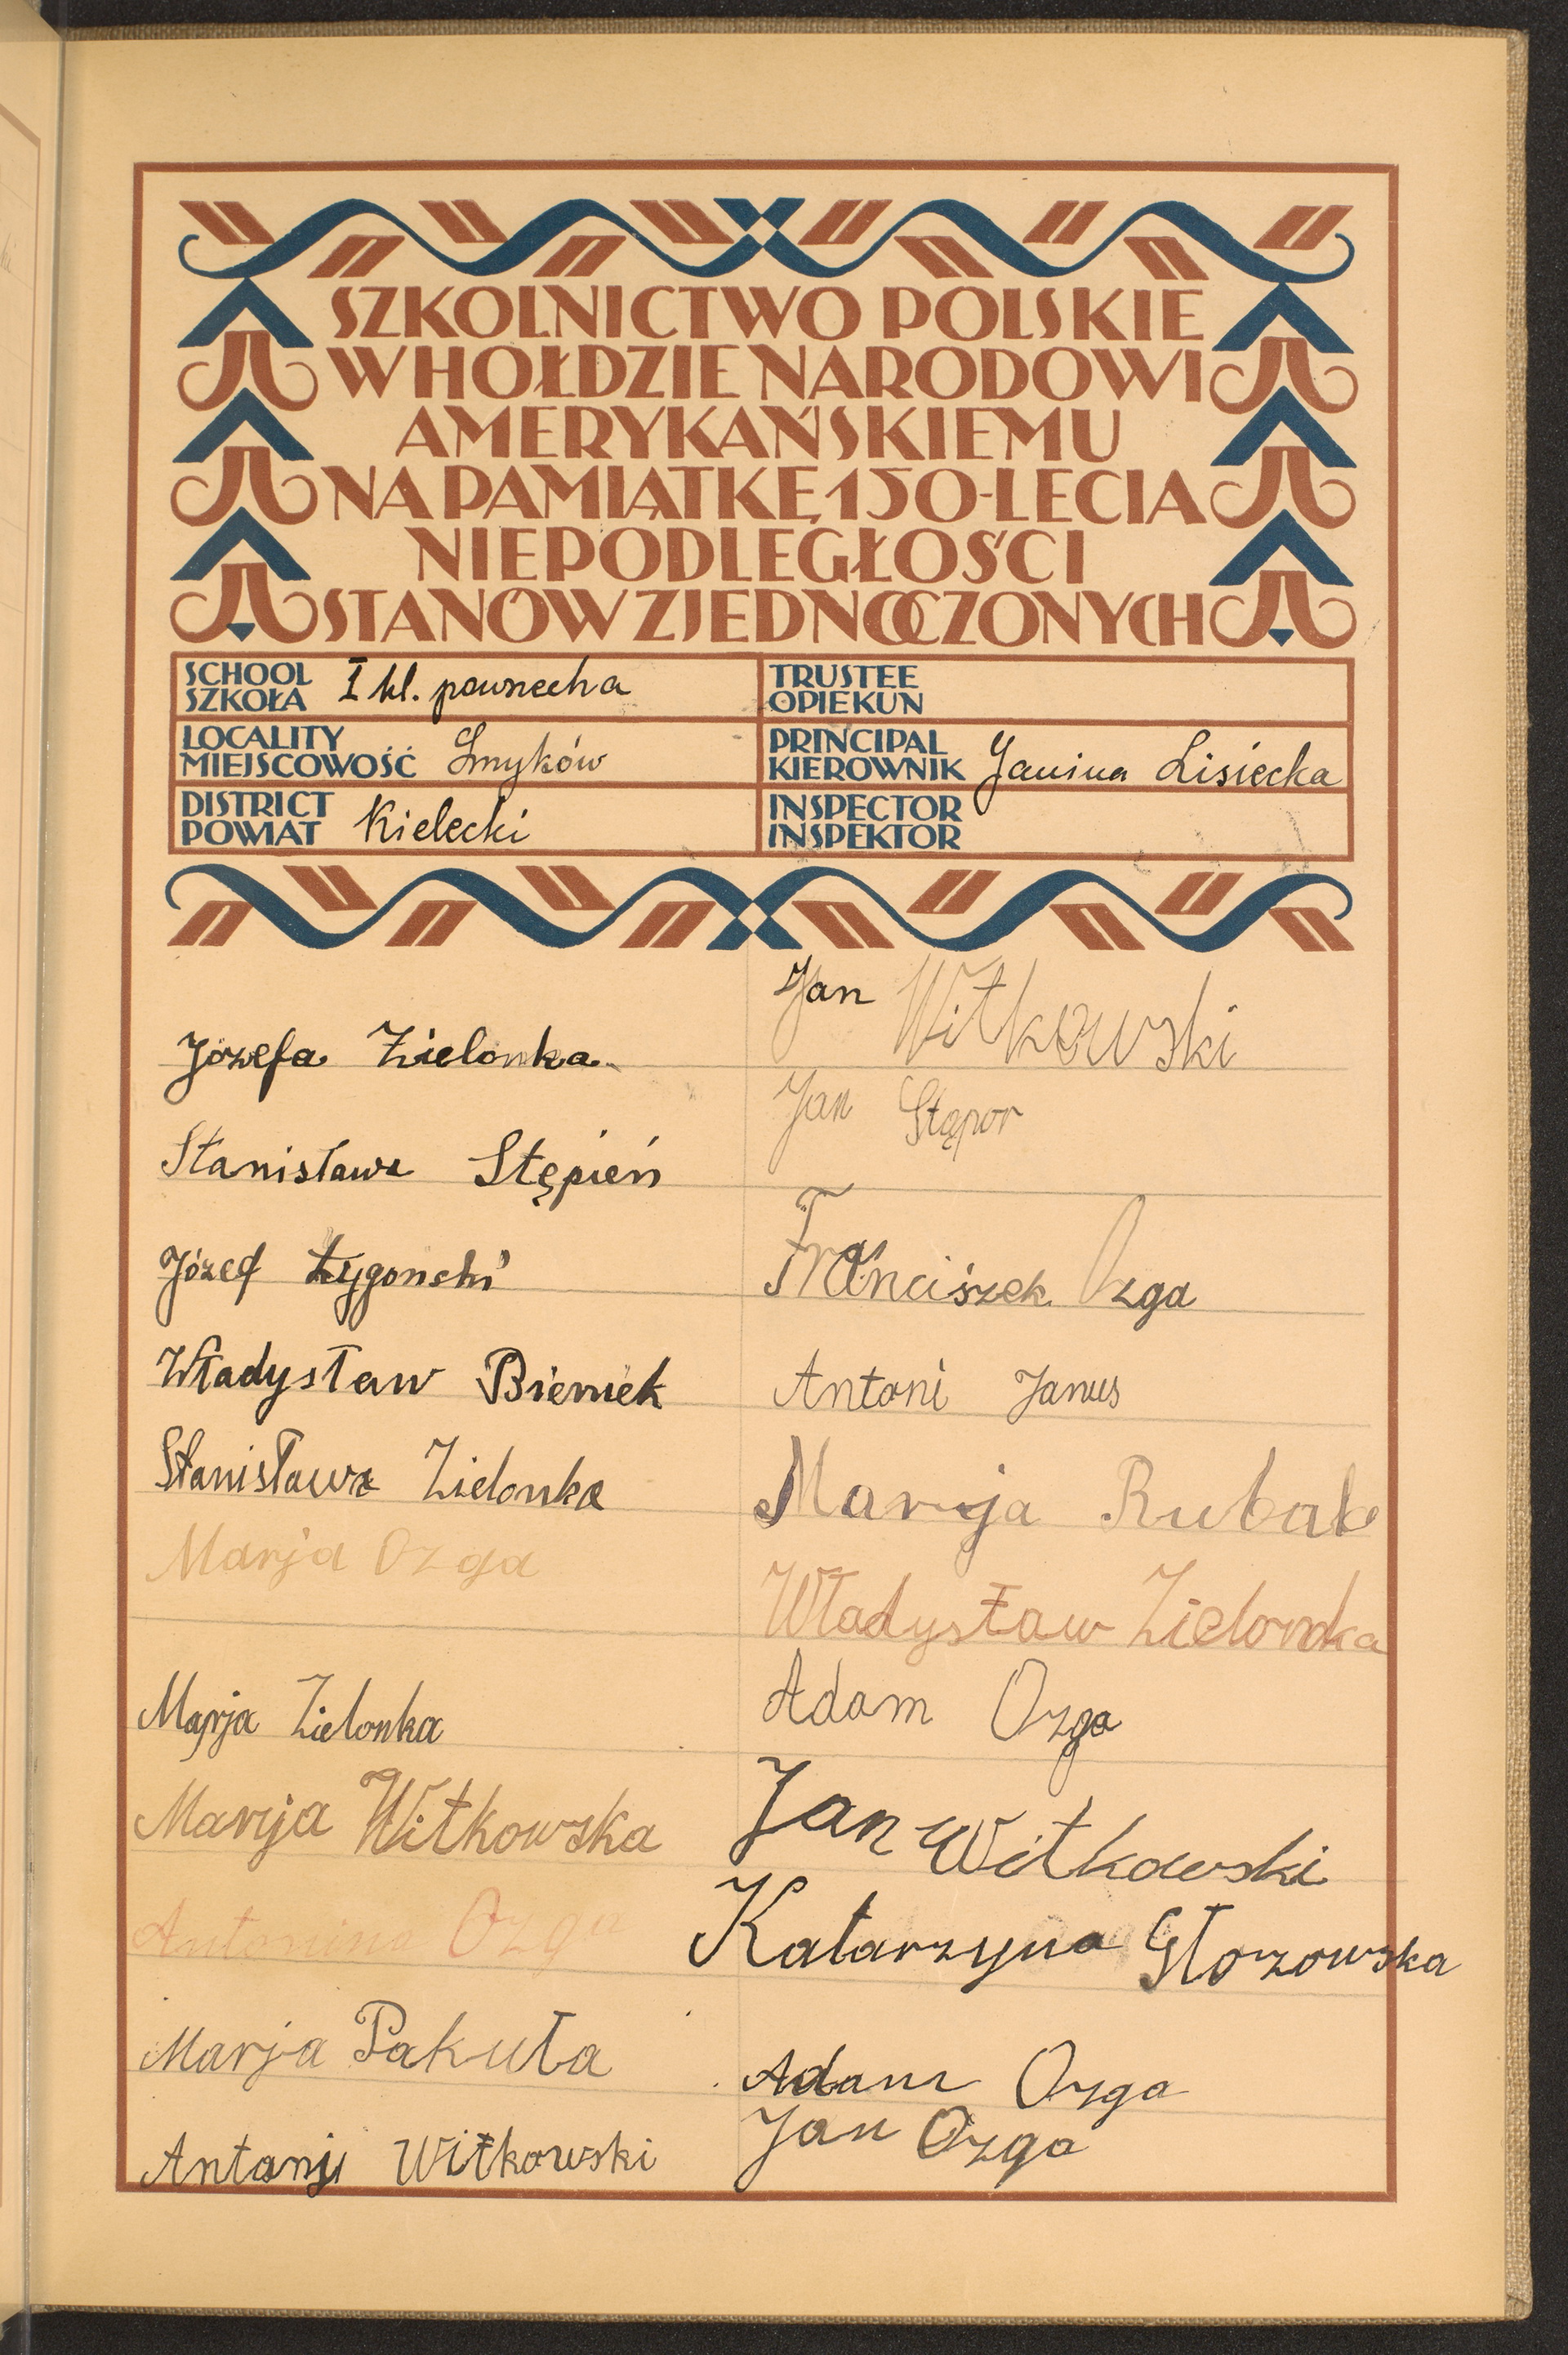 SZKOLNICTWO POLSKIE
W HOŁDZIE NARODOWI
AMERYKAŃSKIEMU
NA PAMIĄTKĘ 150-LECIA
NIEPODLEGŁOŚCI
STANÓW ZJEDNOCZONYCH
SCHOOL
SZKOŁA I kl. powszecha
TRUSTEE
OPIEKUN
LOCALITY
MIEJSCOWOŚĆ Smyków
PRINCIPAL
KIEROWNIK Janina Lisiecka
DISTRICT
POWIAT Kielecki
INSPECTOR
INSPEKTOR
Józefa Zielonka
Stanisława Stępień
Józef Łygonski
Władysław Bieniek
Stanisława Zielonka
Marja Ozga
Marja Zielonka
Marija Witkowska
Antonina Ozga
Marja Pakuła
Antonij Witkowski
Jan Witkowski
Jan Stąpor
Franciszek Ozga
Antoni Janus
Marija Rubak
Władysław Zielonka
Adam Ozga
Jan Witkowski
Katarzyna Głozowska
Adam Ozga
Jan Ozga